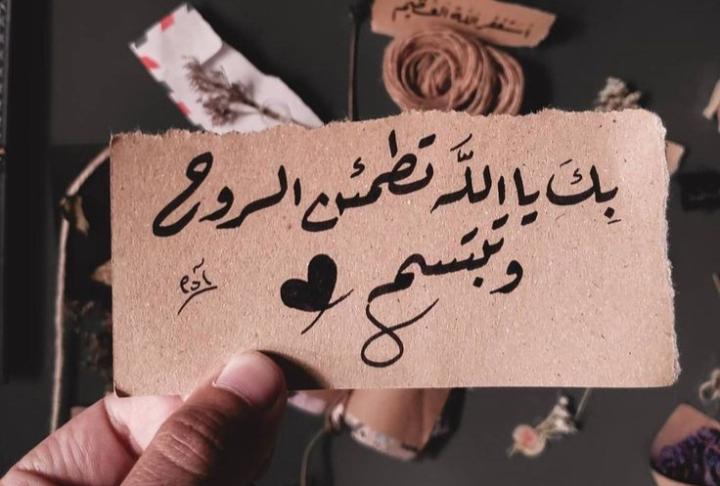 أستغفر الله العظيم
بِكَ يا اللَّه تطمئن الروح
وتبتسم
آدم